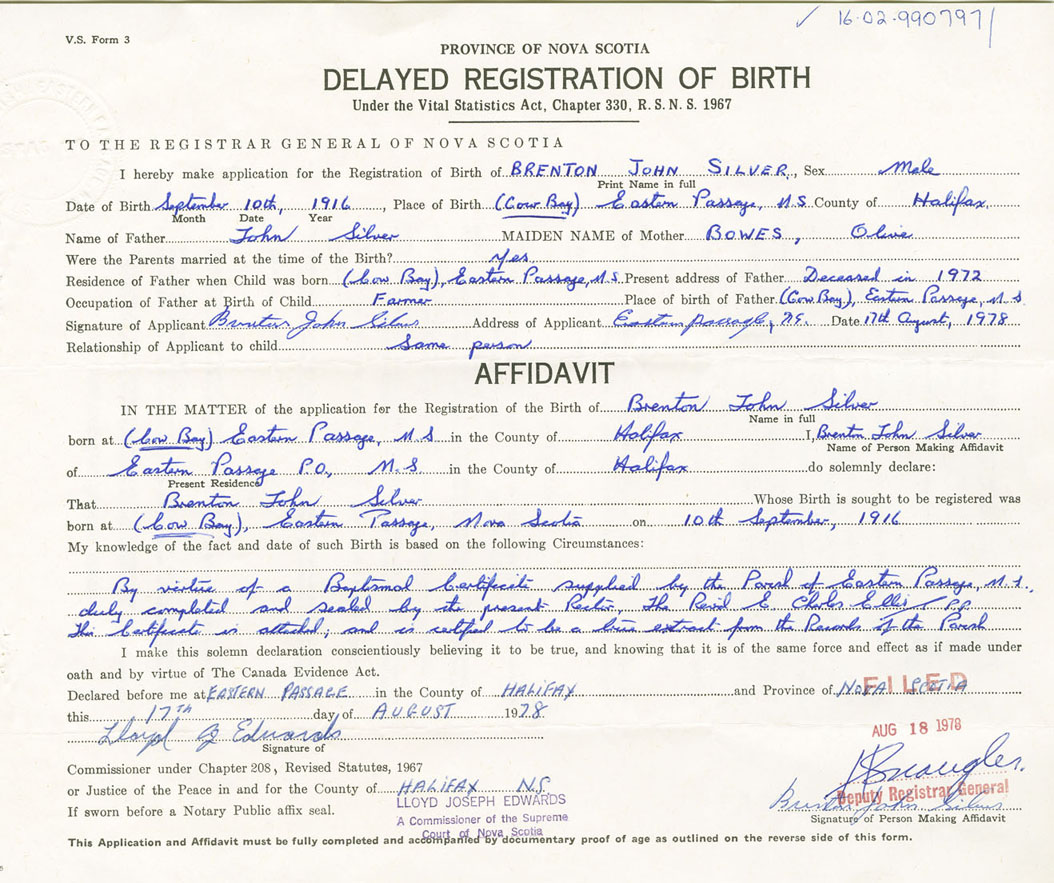 ✓ 16-02-990797
V.S. Form 3
PROVINCE OF NOVA SCOTIA
DELAYED REGISTRATION OF BIRTH
Under the Vital Statistics Act, Chapter 330, R. S. N. S. 1967
TO THE REGISTRAR GENERAL OF NOVA SCOTIA
I hereby make application for the Registration of Birth of BRENTON JOHN SILVER, Sex Male
Print Name in full
Date of Birth September 10th, 1916, Place of Birth (Cow Bay) Eastern Passage, N.S. County of Halifax
Month Date Year
Name of Father John Silver MAIDEN NAME of Mother BOWES, Olive
Were the Parents married at the time of the Birth? Yes
Residence of Father when Child was born (Cow Bay), Eastern Passage, N.S. Present address of Father Deceased in 1972
Occupation of Father at Birth of Child Farmer Place of birth of Father (Cow Bay), Eastern Passage, N.S.
Signature of Applicant Brenton John Silver Address of Applicant Eastern Passage, N.S. Date 17th August, 1978
Relationship of Applicant to child Same person
AFFIDAVIT
IN THE MATTER of the application for the Registration of the Birth of Brenton John Silver
Name in full
born at (Cow Bay) Eastern Passage, N.S. in the County of Halifax I, Brenton John Silver
Name of Person Making Affidavit
of Eastern Passage P.O., N.S. in the County of Halifax do solemnly declare:
Present Residence
That Brenton John Silver Whose Birth is sought to be registered was
born at (Cow Bay), Eastern Passage, Nova Scotia on 10th September, 1916
My knowledge of the fact and date of such Birth is based on the following Circumstances:
By virtue of a Baptismal Certificate supplied by the Parish of Eastern Passage, N.S.
duly completed and sealed by its present Rector, The Rev'd E. Charles Ellis
This Certificate is attached, and is certified to be a true extract from the Records of the Parish
I make this solemn declaration conscientiously believing it to be true, and knowing that it is of the same force and effect as if made under
oath and by virtue of The Canada Evidence Act.
Declared before me at EASTERN PASSAGE in the County of HALIFAX and Province of NOVA SCOTIA
FILED
this 17TH day of AUGUST 1978
AUG 18 1978
Lloyd J Edwards
Signature of
Commissioner under Chapter 208, Revised Statutes, 1967
or Justice of the Peace in and for the County of HALIFAX N.S.
Deputy Registrar General
LLOYD JOSEPH EDWARDS
Brenton John Silver
If sworn before a Notary Public affix seal.
A Commissioner of the Supreme
Signature of Person Making Affidavit
Court of Nova Scotia
This Application and Affidavit must be fully completed and accompanied by documentary proof of age as outlined on the reverse side of this form.